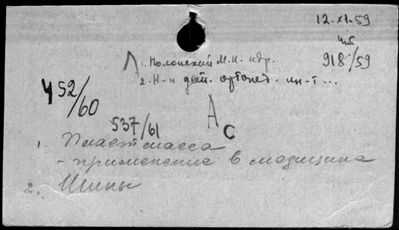 12-XI-59
чб
918/59
1. Полонский М.Н. идр.
2. Н-и дет. ортопед. ин-т...
Ч 52/60
А С
537/61
1. Пластмасса
- применение в медицине
2. Шины